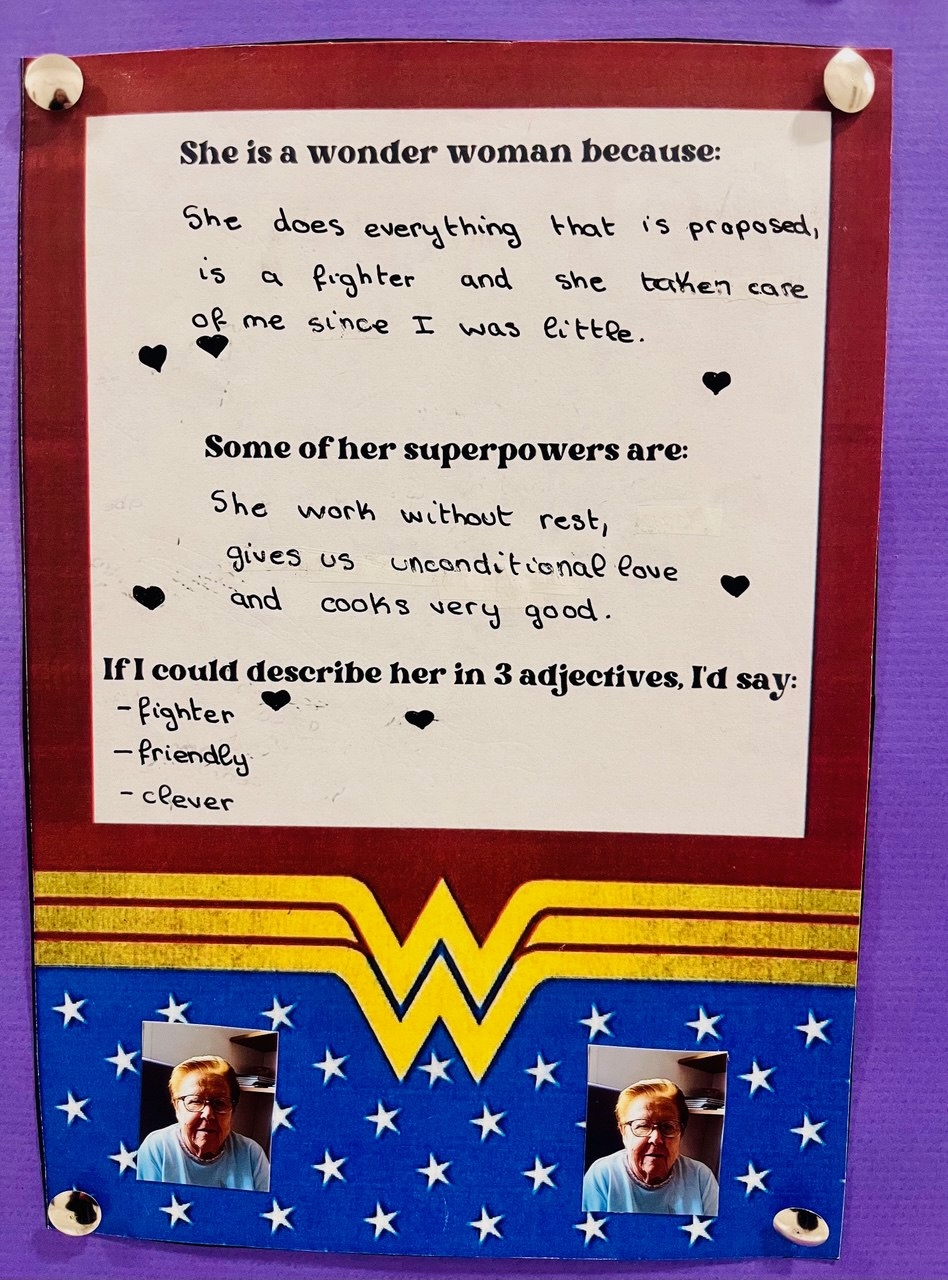 She is a wonder woman because:
She does everything that is proposed,
is a fighter and she taken care
of me since I was little.
Some of her superpowers are:
She work without rest,
gives us unconditional love
and cooks very good.
If I could describe her in 3 adjectives, I'd say:
- fighter
- friendly
- clever